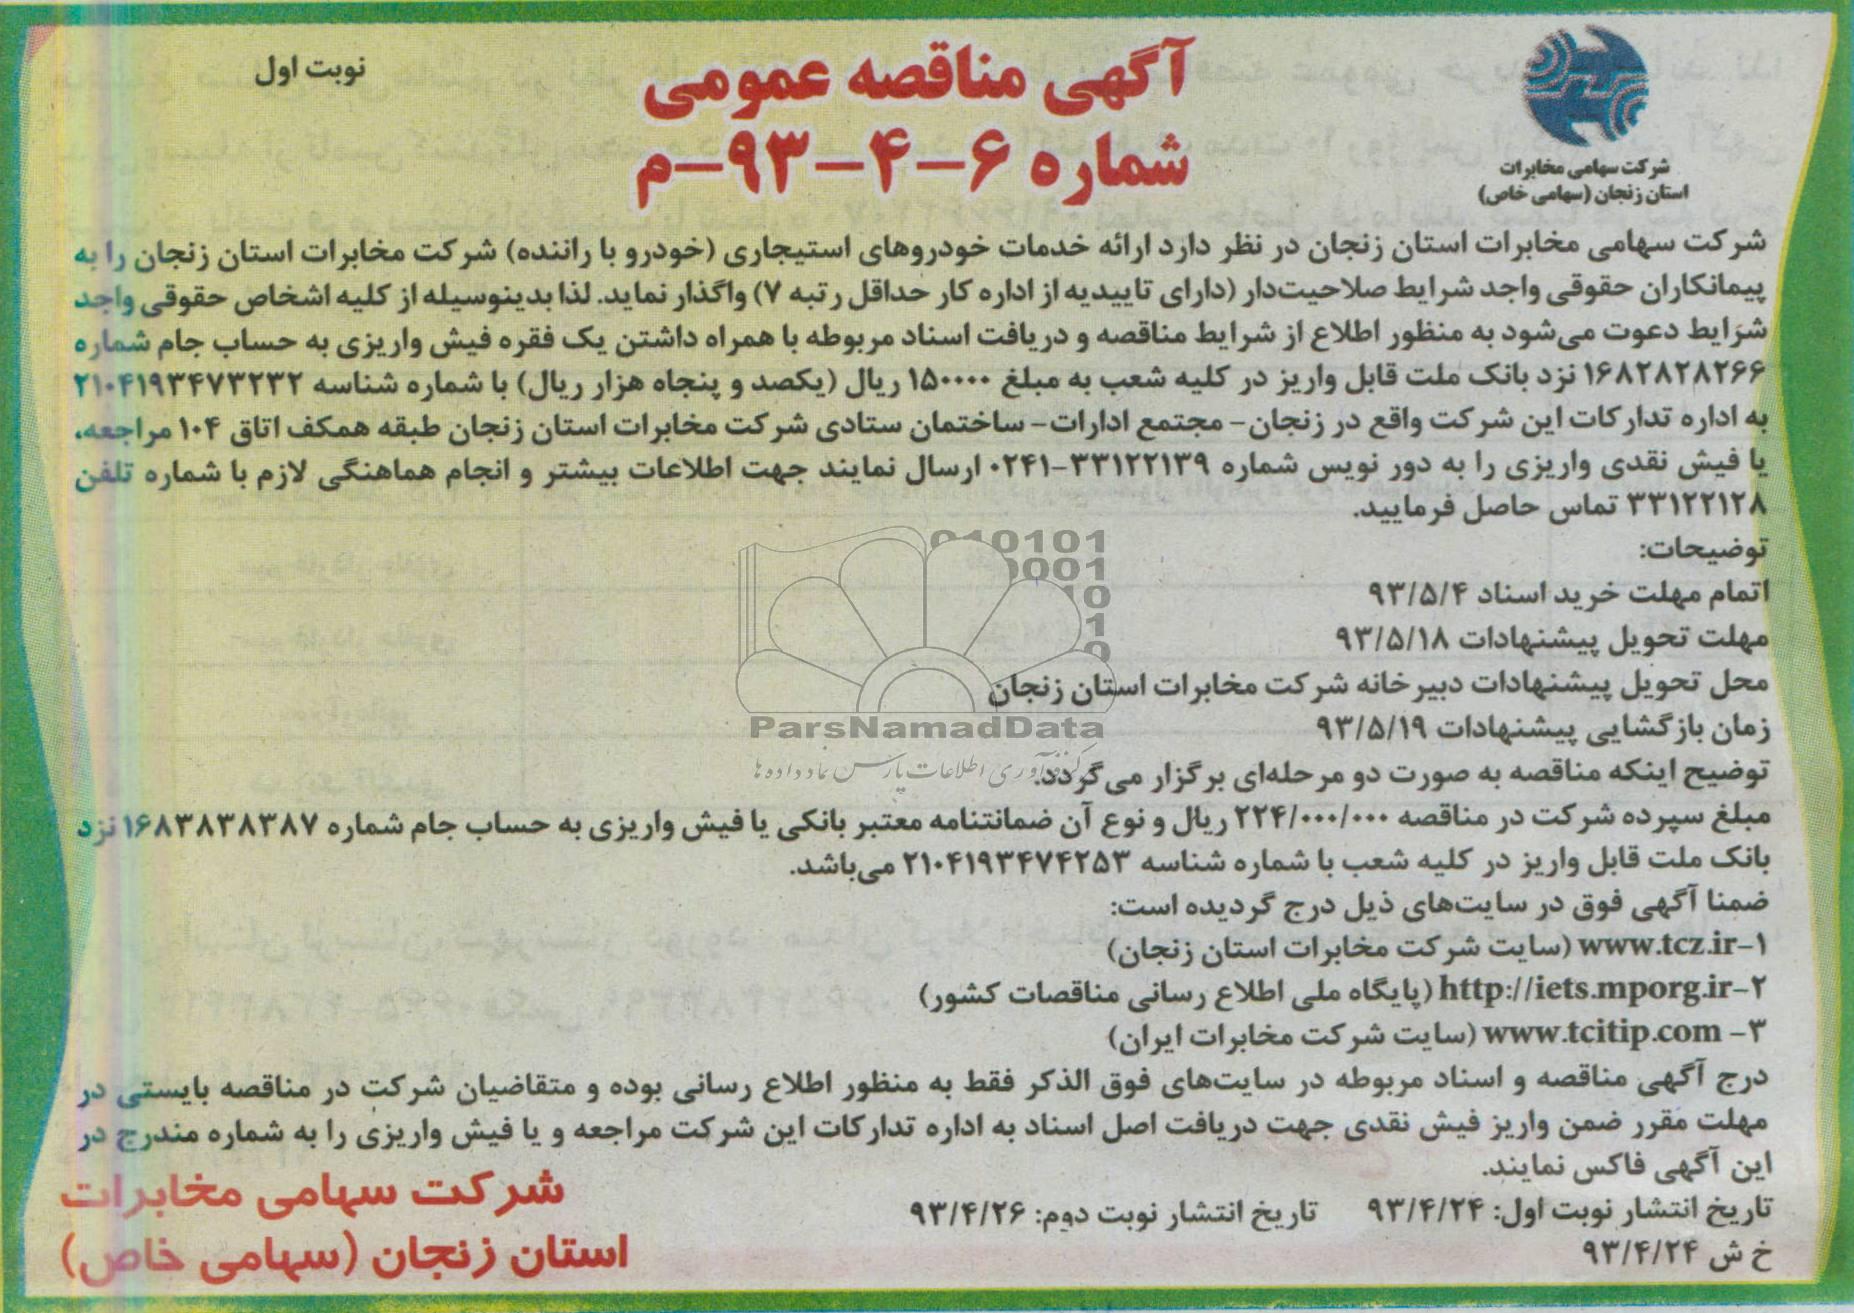 نوبت اول
آگهی مناقصه عمومی
شماره ۶-۴-۹۳-م
شرکت سهامی مخابرات
استان زنجان (سهامی خاص)
شرکت سهامی مخابرات استان زنجان در نظر دارد ارائه خدمات خودروهای استیجاری (خودرو با راننده) شرکت مخابرات استان زنجان را به
پیمانکاران حقوقی واجد شرایط صلاحیت‌دار (دارای تاییدیه از اداره کار حداقل رتبه ۷) واگذار نماید. لذا بدینوسیله از کلیه اشخاص حقوقی واجد
شرایط دعوت می‌شود به منظور اطلاع از شرایط مناقصه و دریافت اسناد مربوطه با همراه داشتن یک فقره فیش واریزی به حساب جام شماره
۱۶۸۲۸۲۸۲۶۶ نزد بانک ملت قابل واریز در کلیه شعب به مبلغ ۱۵۰۰۰۰ ریال (یکصد و پنجاه هزار ریال) با شماره شناسه ۲۱۰۴۱۹۳۴۷۳۲۳۲
به اداره تدارکات این شرکت واقع در زنجان- مجتمع ادارات- ساختمان ستادی شرکت مخابرات استان زنجان طبقه همکف اتاق ۱۰۴ مراجعه،
یا فیش نقدی واریزی را به دور نویس شماره ۳۳۱۲۲۱۳۹-۰۲۴۱ ارسال نمایند جهت اطلاعات بیشتر و انجام هماهنگی لازم با شماره تلفن
۳۳۱۲۲۱۲۸ تماس حاصل فرمایید.
توضیحات:
اتمام مهلت خرید اسناد ۹۳/۵/۴
مهلت تحویل پیشنهادات ۹۳/۵/۱۸
محل تحویل پیشنهادات دبیرخانه شرکت مخابرات استان زنجان
زمان بازگشایی پیشنهادات ۹۳/۵/۱۹
توضیح اینکه مناقصه به صورت دو مرحله‌ای برگزار می‌گردد.
مبلغ سپرده شرکت در مناقصه ۲۲۴/۰۰۰/۰۰۰ ریال و نوع آن ضمانتنامه معتبر بانکی یا فیش واریزی به حساب جام شماره ۱۶۸۳۸۳۸۳۸۷ نزد
بانک ملت قابل واریز در کلیه شعب با شماره شناسه ۲۱۰۴۱۹۳۴۷۴۲۵۳ می‌باشد.
ضمنا آگهی فوق در سایت‌های ذیل درج گردیده است:
۱-www.tcz.ir (سایت شرکت مخابرات استان زنجان)
۲-http://iets.mporg.ir (پایگاه ملی اطلاع رسانی مناقصات کشور)
۳- www.tcitip.com (سایت شرکت مخابرات ایران)
درج آگهی مناقصه و اسناد مربوطه در سایت‌های فوق الذکر فقط به منظور اطلاع رسانی بوده و متقاضیان شرکت در مناقصه بایستی در
مهلت مقرر ضمن واریز فیش نقدی جهت دریافت اصل اسناد به اداره تدارکات این شرکت مراجعه و یا فیش واریزی را به شماره مندرج در
این آگهی فاکس نمایند.
تاریخ انتشار نوبت اول: ۹۳/۴/۲۴ تاریخ انتشار نوبت دوم: ۹۳/۴/۲۶
خ ش ۹۳/۴/۲۴
شرکت سهامی مخابرات
استان زنجان (سهامی خاص)
ParsNamadData